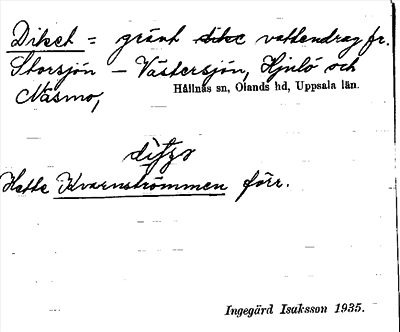 Diket = grävt dike vattendrag fr.
Storsjön – Västersjön, Hjälö och
Näsmo,
Hållnäs sn, Olands hd, Uppsala län.
Hette Kvarnströmmen förr.
Ingegärd Isaksson 1935.